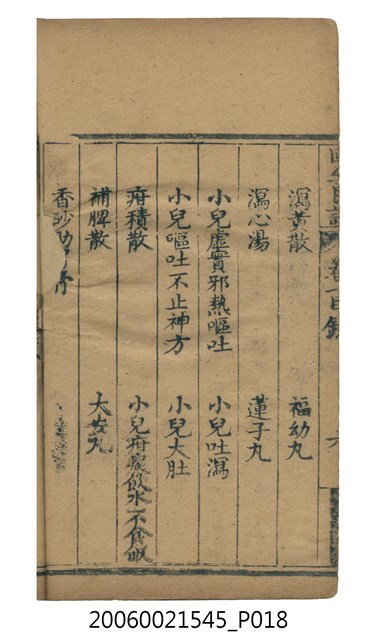 卷一目錄
瀉黃散 福幼丸
瀉心湯 蓮子丸
小兒虛實邪熱嘔吐 小兒吐瀉
小兒嘔吐不止神方 小兒大肚
疳積散 小兒疳飲水不食
補脾散 大安丸
香砂
20060021545_P018